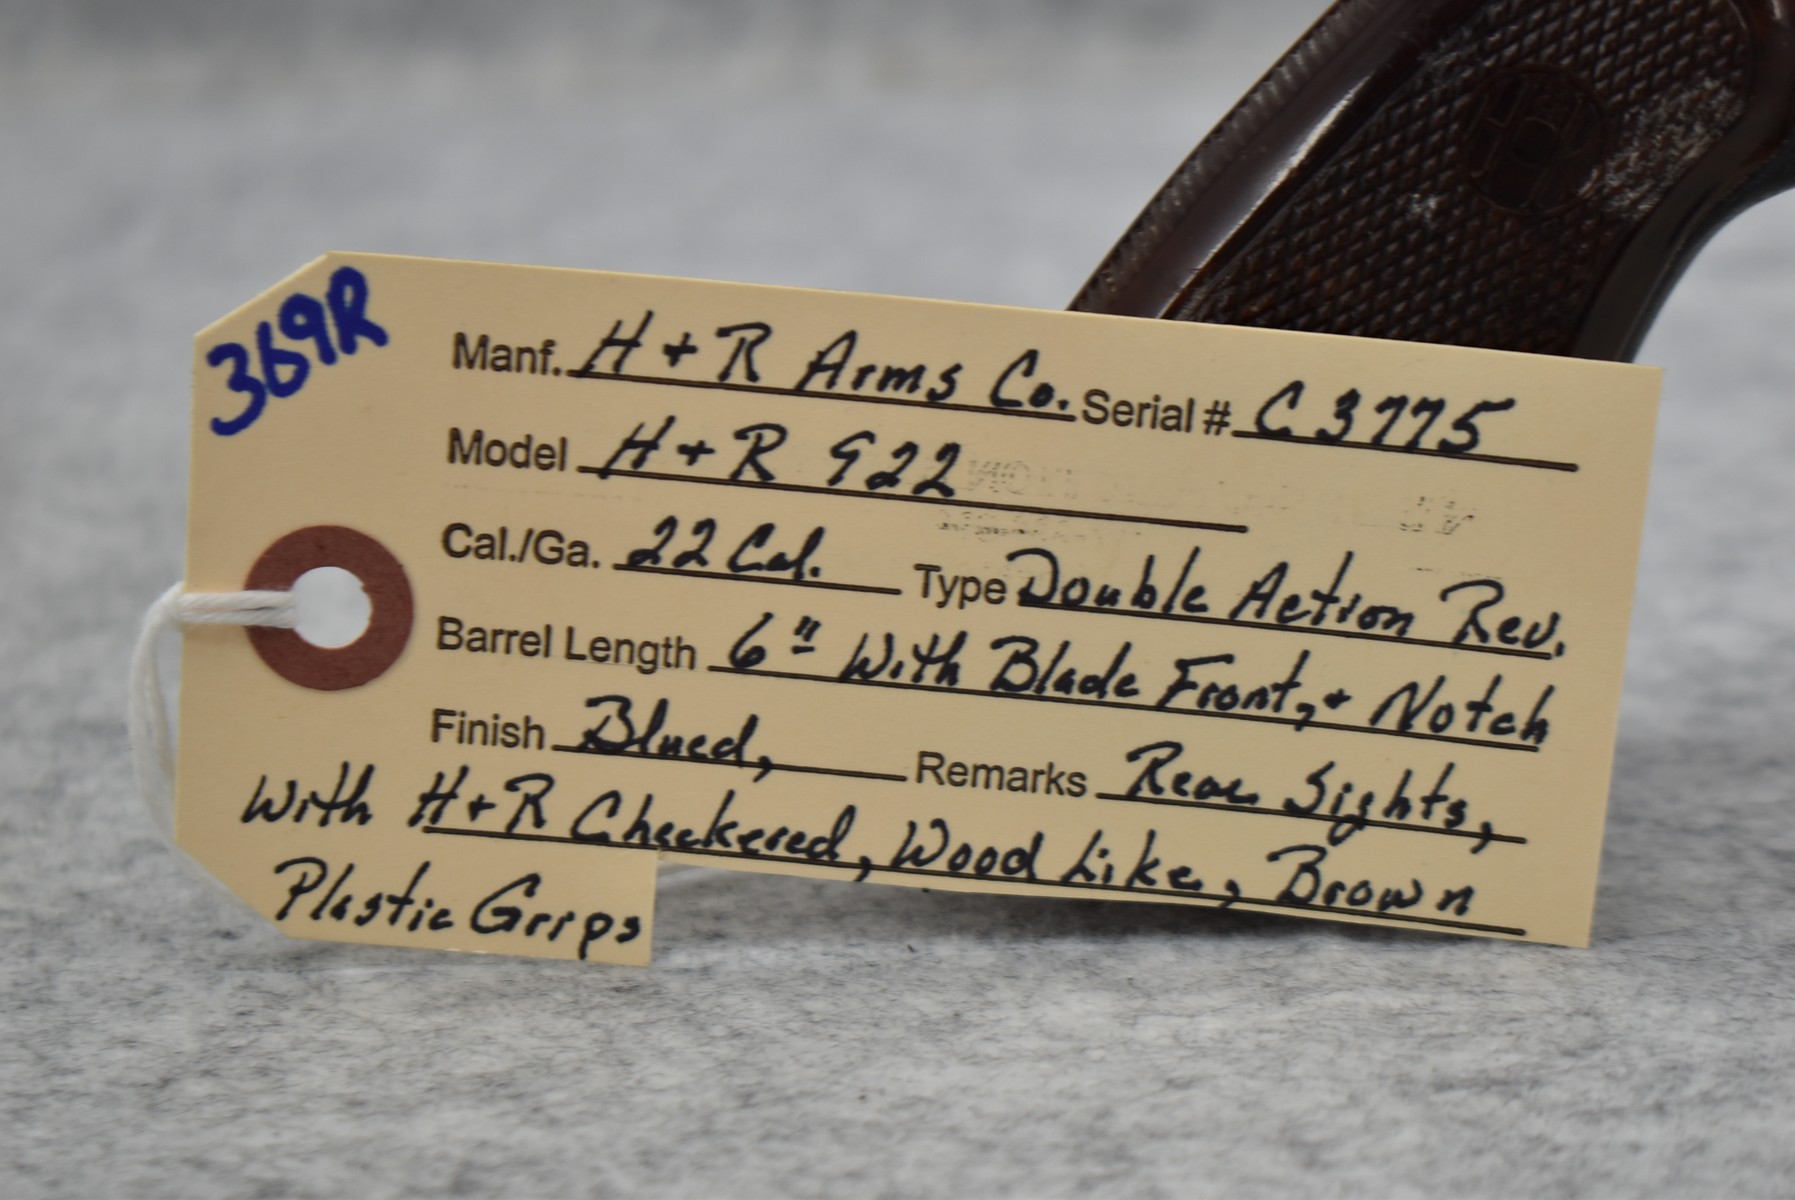 369R
Manf. H + R Arms Co. Serial # C 3775
Model H + R 922
Cal./Ga. 22 Cal. Type Double Action Rev.
Barrel Length 6" With Blade Front, + Notch
Finish Blued, Remarks Rear Sights,
With H + R Checkered, Wood Like, Brown
Plastic Grips